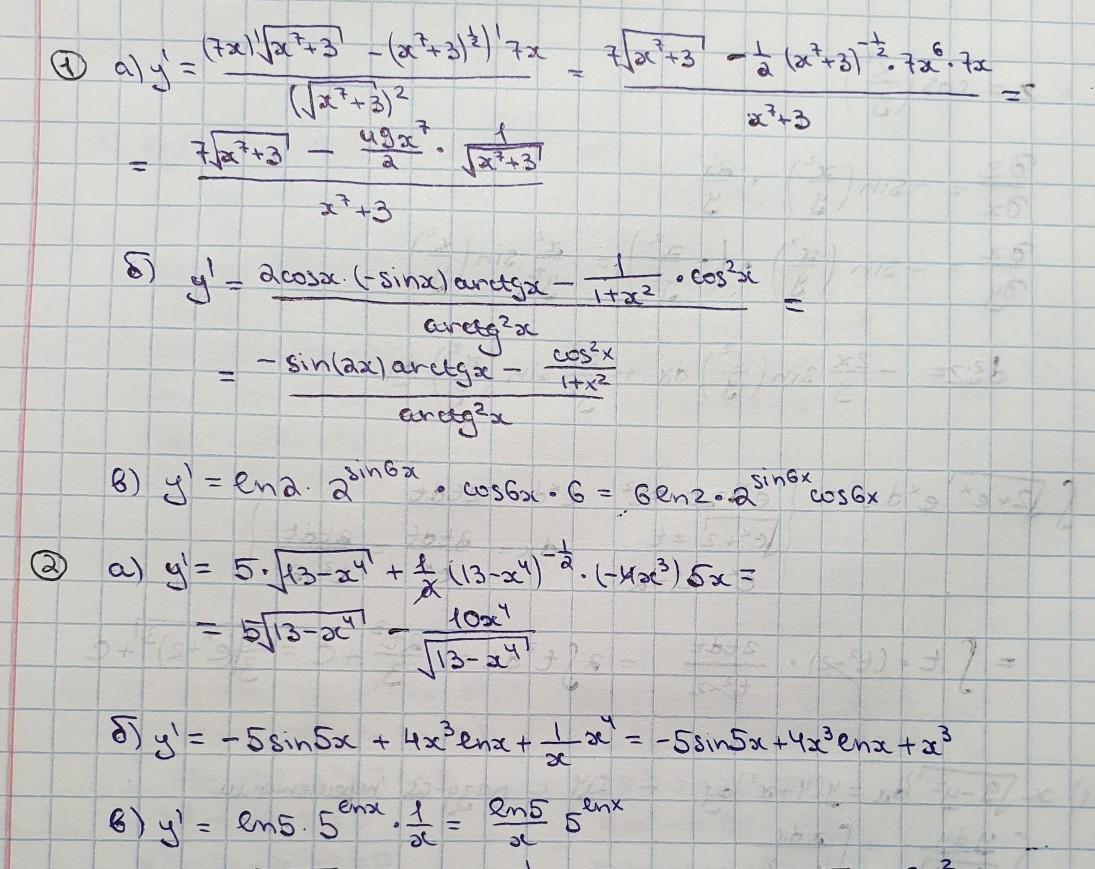 ① а) y' = ((7x)'√(x⁷+3) - (x⁷+3)^(1/2))' 7x)/(√(x⁷+3))² = (7√(x⁷+3) - 1/2 (x⁷+3)^(-1/2) · 7x⁶ · 7x)/(x⁷+3) =
= (7√(x⁷+3) - 49x⁷/2 · 1/√(x⁷+3))/(x⁷+3)
б) y' = (2cosx · (-sinx) arctgx - 1/(1+x²) · cos²x)/(arctg²x) =
= (-sin(2x) arctgx - cos²x/(1+x²))/(arctg²x)
в) y' = ln2 · 2^(sin6x) · cos6x · 6 = 6ln2 · 2^(sin6x) cos6x
② а) y' = 5 · √(13-x⁴) + 1/2 (13-x⁴)^(-1/2) · (-4x³) 5x =
= 5√(13-x⁴) - 10x⁴/√(13-x⁴)
б) y' = -5sin5x + 4x³lnx + 1/x x⁴ = -5sin5x + 4x³lnx + x³
в) y' = ln5 · 5^(lnx) · 1/x = ln5/x 5^(lnx)